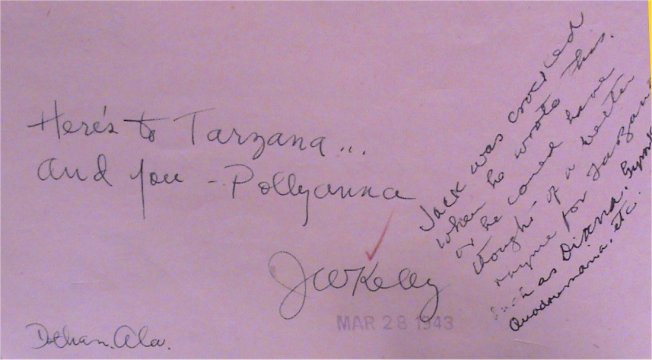 Here's to Tarzana...
And you - Pollyanna
JWKelly
MAR 28 1943
Ala.
Jack was crocked
when he wrote this.
or he could have
thought of a better
rhyme for Tarzana
Such as Diana,
etc.